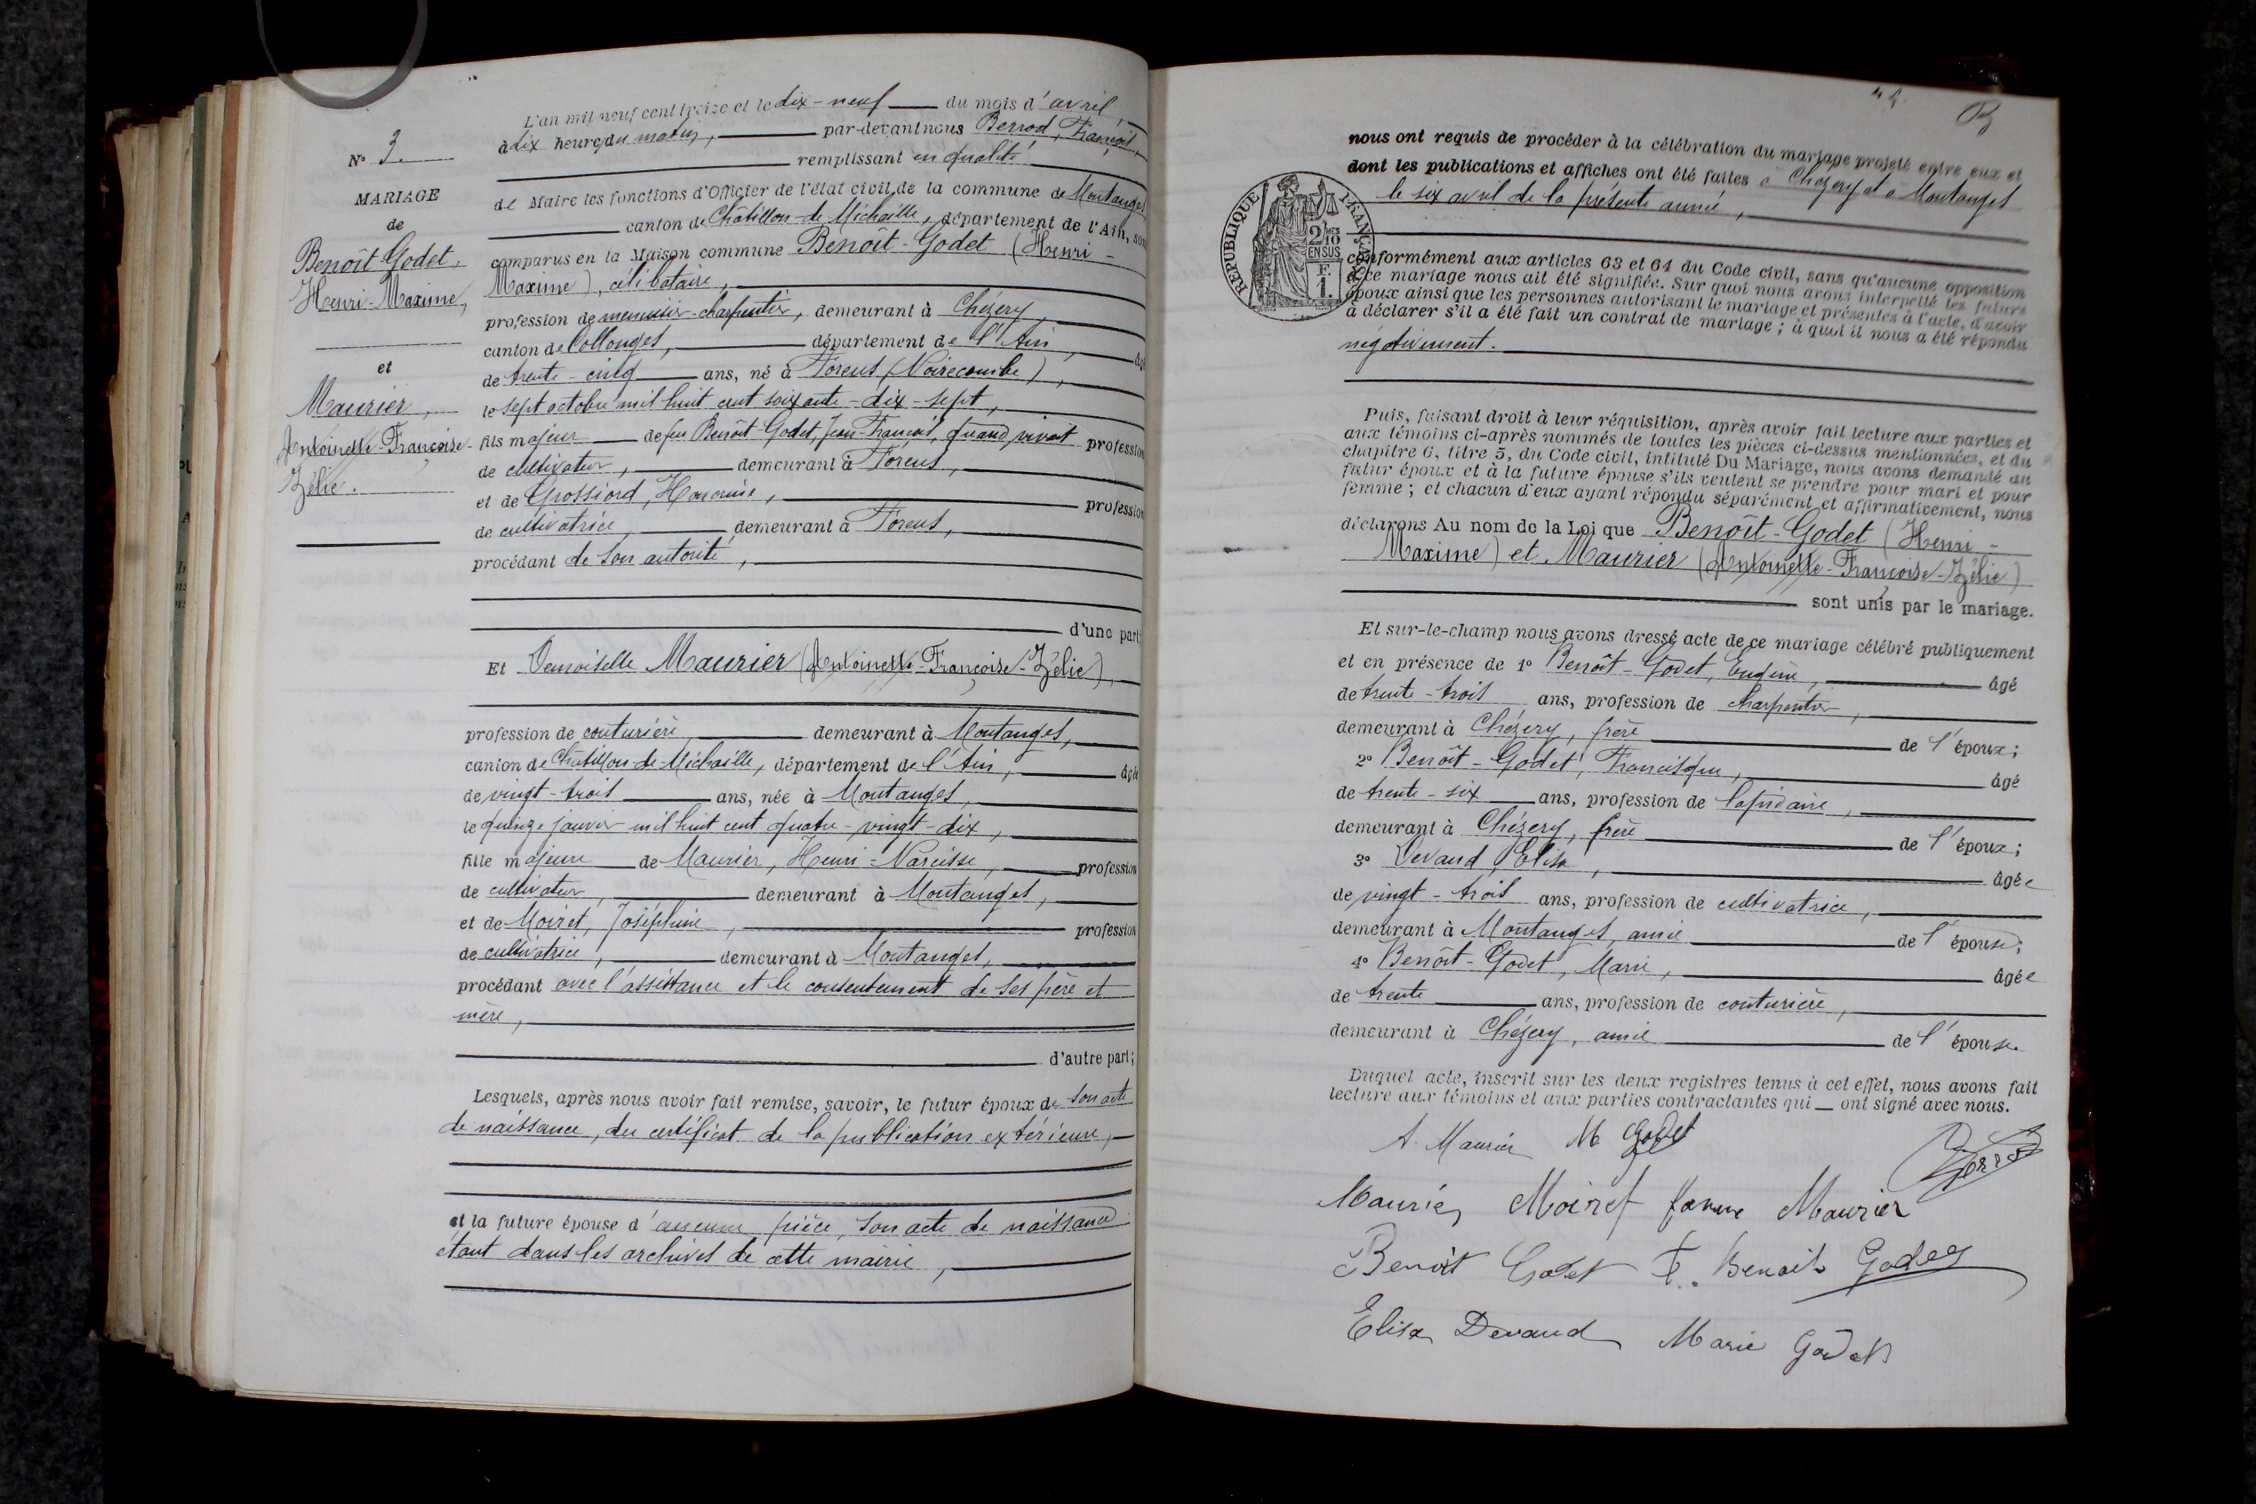 L'an mil neuf cent treize et le dix-neuf du mois d'avril,
à dix heures du matin, par-devant nous Berrod, François,
remplissant en qualité
de Maire les fonctions d'Officier de l'état civil de la commune de Montanges
canton de Châtillon-de-Michaille, département de l'Ain, son
comparus en la Maison commune Benoît-Godet (Henri-
Maxime), célibataire,
profession de menuisier-charpentier, demeurant à Chézery,
canton de Collonges, département de l'Ain, âgé
de trente-cinq ans, né à Forens (Noirecombe),
le sept octobre mil huit cent soixante-dix-sept,
fils majeur de feu Benoît-Godet, Jean-François, quand vivait profession
de cultivateur, demeurant à Forens,
et de Grossiord, Honorine, profession
de cultivatrice, demeurant à Forens,
procédant de son autorité,
d'une part;
Et Demoiselle Maurier (Antoinette-Françoise-Zélie),
profession de couturière, demeurant à Montanges,
canton de Châtillon-de-Michaille, département de l'Ain, âgée
de vingt-trois ans, née à Montanges,
le quinze janvier mil huit cent quatre-vingt-dix,
fille majeure de Maurier, Henri-Narcisse, profession
de cultivateur, demeurant à Montanges,
et de Moiret, Joséphine, profession
de cultivatrice, demeurant à Montanges,
procédant avec l'assistance et le consentement de ses père et
mère,
d'autre part;
Lesquels, après nous avoir fait remise, savoir, le futur époux de son acte
de naissance, du certificat de la publication extérieure,
et la future épouse d'aucune pièce, son acte de naissance
étant dans les archives de cette mairie,
N° 3.
MARIAGE
de
Benoît-Godet,
Henri-Maxime,
et
Maurier,
Antoinette-Françoise-
Zélie.
nous ont requis de procéder à la célébration du mariage projeté entre eux et
dont les publications et affiches ont été faites à Chézery et à Montanges
le six avril de la présente année,
RÉPUBLIQUE FRANÇAISE
2/10
EN SUS
F.
1.
conformément aux articles 63 et 64 du Code civil, sans qu'aucune opposition
à ce mariage nous ait été signifiée. Sur quoi nous avons interpellé les futurs
époux ainsi que les personnes autorisant le mariage et présentes à l'acte, d'avoir
à déclarer s'il a été fait un contrat de mariage; à quoi il nous a été répondu
négativement.
Puis, faisant droit à leur réquisition, après avoir fait lecture aux parties et
aux témoins ci-après nommés de toutes les pièces ci-dessus mentionnées, et du
chapitre 6, titre 5, du Code civil, intitulé Du Mariage, nous avons demandé au
futur époux et à la future épouse s'ils veulent se prendre pour mari et pour
femme; et chacun d'eux ayant répondu séparément et affirmativement, nous
déclarons Au nom de la Loi que Benoît-Godet (Henri-
Maxime) et Maurier (Antoinette-Françoise-Zélie)
sont unis par le mariage.
Et sur-le-champ nous avons dressé acte de ce mariage célébré publiquement
et en présence de 1° Benoît-Godet, Eugène, âgé
de trente-trois ans, profession de charpentier,
demeurant à Chézery, frère de l'époux;
2° Benoît-Godet, Francisque, âgé
de trente-six ans, profession de lapidaire,
demeurant à Chézery, frère de l'époux;
3° Devaud, Elisa, âgée
de vingt-trois ans, profession de cultivatrice,
demeurant à Montanges, amie de l'épouse;
4° Benoît-Godet, Marie, âgée
de trente ans, profession de couturière,
demeurant à Chézery, amie de l'épouse.
Duquel acte, inscrit sur les deux registres tenus à cet effet, nous avons fait
lecture aux témoins et aux parties contractantes qui ont signé avec nous.
A. Maurier M Godet
Berrod
Maurier Moiret femme Maurier
Benoit Godet F. Benoit Godet
Elisa Devaud Marie Godet